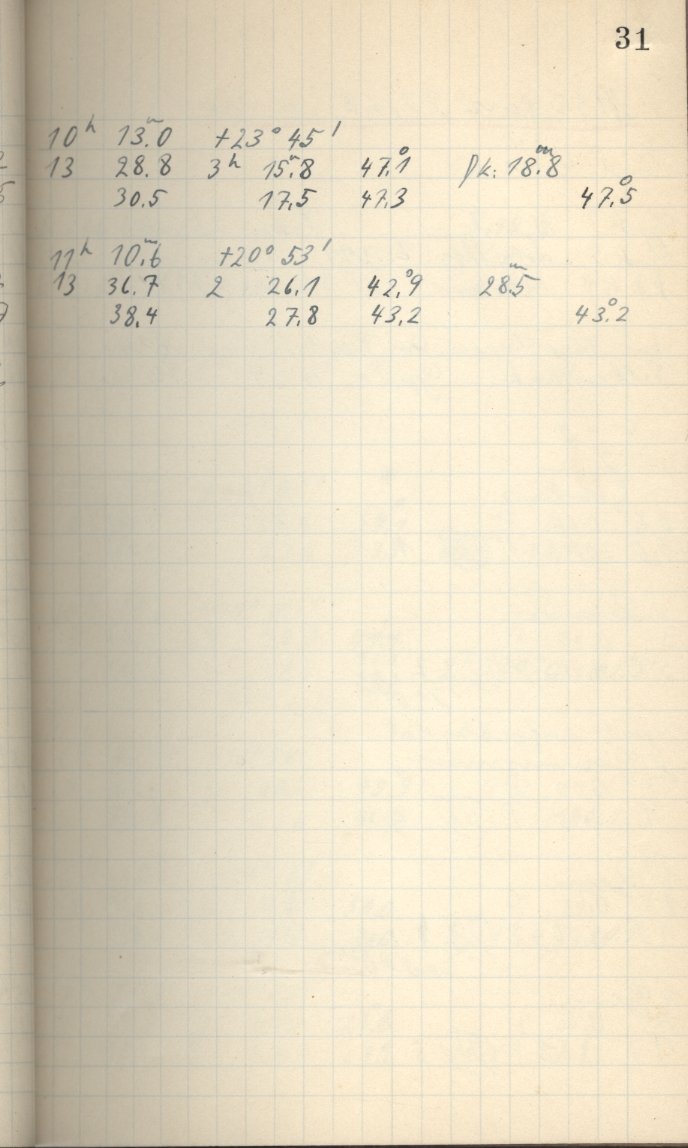 31
10ʰ 13ᵐ.0 +23° 45'
13 28.8 3ʰ 15ᵐ.8 47°.1 Pk: 18ᵐ.8
30.5 17.5 47.3 47°.5
11ʰ 10ᵐ.6 +20° 53'
13 36.7 2 26.1 42°.9 28ᵐ.5
38.4 27.8 43.2 43°.2